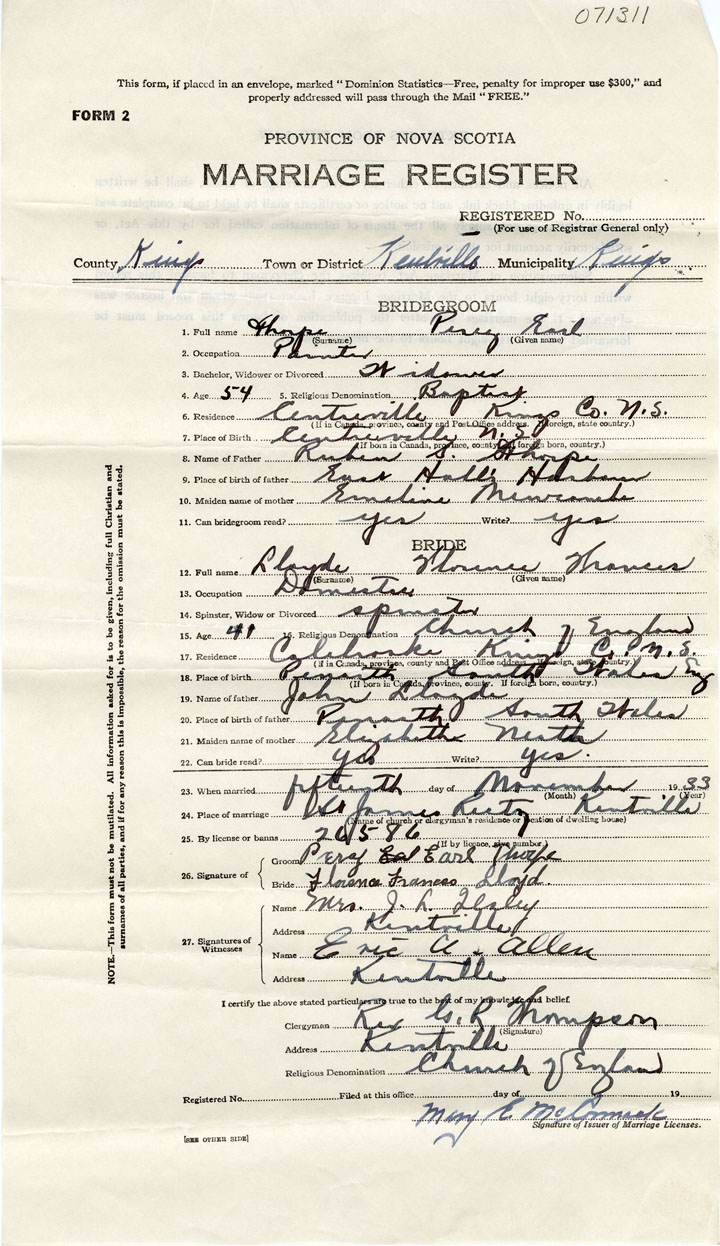 071311
This form, if placed in an envelope, marked "Dominion Statistics—Free, penalty for improper use $300," and
properly addressed will pass through the Mail "FREE."
FORM 2
PROVINCE OF NOVA SCOTIA
MARRIAGE REGISTER
REGISTERED No.
(For use of Registrar General only)
County Kings Town or District Kentville Municipality Kings
BRIDEGROOM
1. Full name Thorpe Percy Earl
(Surname) (Given name)
2. Occupation Painter
3. Bachelor, Widower or Divorced Widower
4. Age 54 5. Religious Denomination Baptist
6. Residence Centreville Kings Co. N.S.
(If in Canada, province, county and Post Office address. If foreign, state country.)
7. Place of Birth Centreville N.S.
(If born in Canada, province, county, if foreign born, country.)
8. Name of Father Ruben S. Thorpe
9. Place of birth of father East Hall's Harbour
10. Maiden name of mother Emeline Newcombe
11. Can bridegroom read? yes Write? yes
BRIDE
12. Full name Lloyde Florence Frances
(Surname) (Given name)
13. Occupation Domestic
14. Spinster, Widow or Divorced spinster
15. Age 41 16. Religious Denomination Church of England
17. Residence Kings Co. N.S.
(if in Canada, province, county and Post Office address. If foreign, state country.)
18. Place of birth Penarth South Wales Eng
(If born in Canada, province, county. If foreign born, country.)
19. Name of father John Lloyde
20. Place of birth of father Penarth South Wales
21. Maiden name of mother Elizabeth
22. Can bride read? yes Write? yes.
23. When married fifteenth day of November 1933
(Month) (Year)
24. Place of marriage St James Kentville
(Name of church or clergyman's residence or mention of dwelling house)
25. By license or banns 26586
(If by licence, give number.)
26. Signature of
Groom Percy Earl Thorpe
Bride Florence Frances Lloyd.
27. Signatures of Witnesses
Name Mrs. J. L.
Address Kentville
Name Eric A. Allen
Address Kentville
I certify the above stated particulars are true to the best of my knowledge and belief.
Clergyman Rev G. R Thompson
(Signature)
Address Kentville
Religious Denomination Church of England
Registered No. Filed at this office day of 19
Mary E McCormick
Signature of Issuer of Marriage Licenses.
[SEE OTHER SIDE]
NOTE.—This form must not be mutilated. All information asked for is to be given, including full Christian and
surnames of all parties, and if for any reason this is impossible, the reason for the omission must be stated.